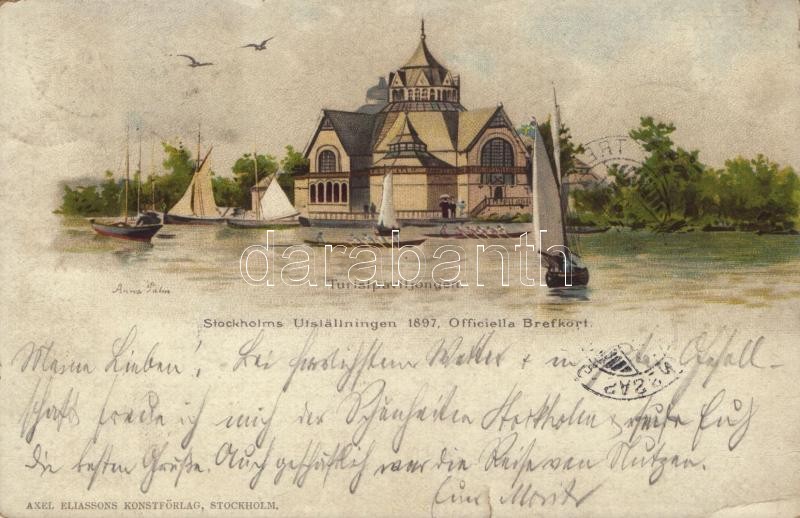 darabanth
Anna Palm
Turistpaviljongen
Stockholms Utställningen 1897, Officiella Brefkort.
Meine Lieben! Bei herrlichstem Wetter + in Gesell-
schaft freue ich mich der Schönheiten Stockholms + sende Euch
die besten Grüße. Auch geschäftlich war die Reise von Nutzen.
Euer Moritz
AXEL ELIASSONS KONSTFÖRLAG, STOCKHOLM.